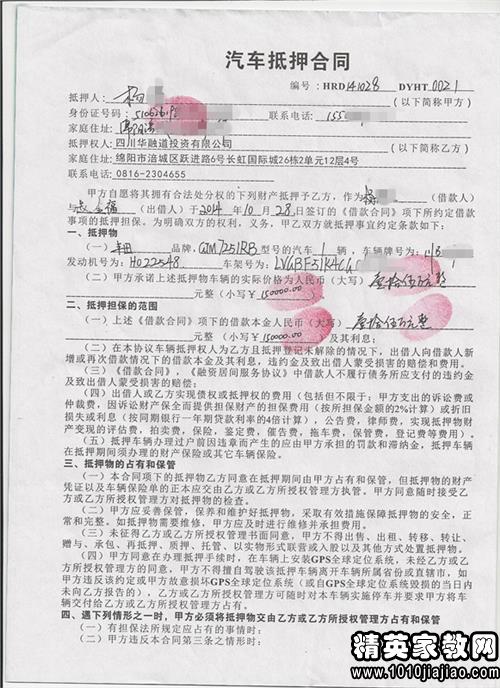 汽车抵押合同
编号：HRD141028 DYHT 0021
抵押人： （以下简称甲方）
身份证号码：51062619 联系电话：155
家庭住址：
抵押权人：四川华融道投资有限公司 （以下简称乙方）
家庭住址：绵阳市涪城区跃进路6号长虹国际城26栋2单元12层4号
联系电话：0816-2304655
甲方自愿将其拥有合法处分权的下列财产抵押予乙方，作为 （借款人）
与 （出借人）于2014年10月28日签订的《借款合同》项下所约定借款
事项的抵押担保。为明确双方的权利，义务，甲乙双方就抵押事宜约定条款如下：
一、抵押物
（一）丰田 品牌，GTM7251RB 型号的汽车 1 辆，车辆牌号为：川B
发动机号为：H022548 车架号为：
（二）甲方承诺上述抵押物车辆的实际价格为人民币（大写）壹拾伍万元整
元整（小写¥150000.00）
二、抵押担保的范围
（一）上述《借款合同》项下的借款本金人民币（大写）壹拾伍万元整
元整（小写¥150000.00）及其利息；
（二）在本协议车辆抵押权人为乙方且抵押登记未解除的情况下，出借人向借款人新
增或再次借款情况下的借款本金及其利息，违约金及致出借人蒙受损害的赔偿和费用。
（三）《借款合同》，《融资居间服务协议》中借款人不履行债务所应支付的违约金
及致出借人蒙受损害的赔偿；
（四）出借人或乙方实现债权或抵押权的费用（包括但不限于：甲方支出的诉讼费或
仲裁费，因诉讼财产保全而提供担保财产的担保费用（按所担保金额的2%计算）或折旧
损失或利息（按同期银行一年期贷款利率的4倍计算），公告费，律师费，实现抵押物财
产变现的评估费，拍卖费，保险，鉴定费，催告费，拖车费，保管费，登记费等费用）。
（五）抵押车辆办理过户前因违章而产生的应由甲方承担的罚款和滞纳金，抵押车辆
在抵押期间须办理的财产保险或其它车辆保险。
三、抵押物的占有和保管
（一）本合同项下的抵押物乙方同意在抵押期间由甲方占有和保管，但抵押物的财产
凭证以及车辆保险单的正本应交由乙方或乙方所授权管理方执管。甲方同意随时接受乙
方或乙方所授权管理方对抵押物的检查。
（二）甲方应妥善保管，保养和维护好抵押物，采取有效措施保障抵押物的安全，正
常和完整。如抵押物需要维修，甲方应及时进行维修并承担费用。
（三）未征得乙方或乙方所授权管理书面同意，甲方不得出售、出租、转移、转让、
赠与、承包、再抵押、质押、托管、以实物形式联营或入股以及其他方式处置抵押物。
（四）甲方同意在办理抵押手续时，在车辆上安装GPS全球定位系统，未经乙方或乙
方所授权管理方的同意，甲方不得擅自驾驶该抵押车辆开车辆所属省份或直辖市，如
甲方违反该约定或甲方故意损坏GPS全球定位系统（或自GPS全球定位系统毁损的当日内
未向乙方报告的），乙方或乙方所授权管理方可随时对本车辆实施停车并要求甲方将车
辆交付给乙方或乙方所授权管理方占有。
四、遇下列情形之一时，甲方必须将抵押物交由乙方或乙方所授权管理方占有和保管
（一）有担保法所规定应占有的事情时；
（二）甲方违反本合同第三条之情形时；
精英家教网
www.1010jiajiao.com